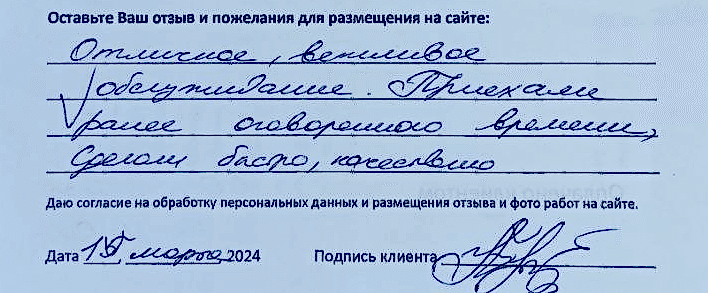 Оставьте Ваш отзыв и пожелания для размещения на сайте:
Отличное, вежливое
обслуживание. Приехали
ранее оговоренного времени,
Сделали быстро, качественно
Даю согласие на обработку персональных данных и размещения отзыва и фото работ на сайте.
Дата 15 марта 2024 Подпись клиента